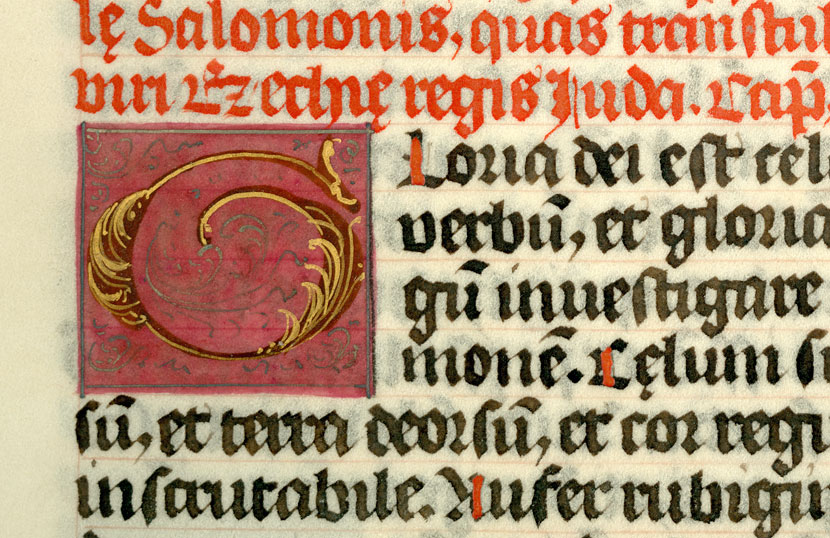 lę Salomonis, quas transtul
viri Ezechię regis Iuda. Cap̄
G Loria dei est cel
verbū, et gloria
gū inuestigare
monē. Cęlum su
sū, et terra deorsū, et cor regu
inscrutabile. Aufer rubigin